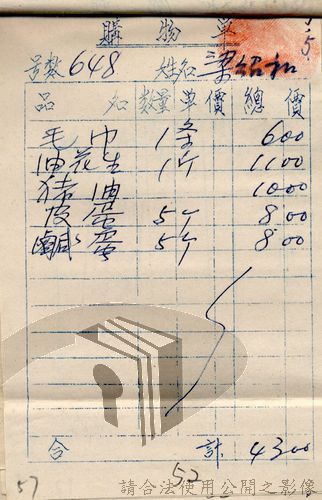 購物單
15
號數 648 姓名 梁紹和
品名 數量 單價 總價
毛巾 1条 600
油花生 1斤 1100
猪油 1000
皮蛋 5个 800
鹹蛋 5个 800
合計 4300
57 52
請合法使用公開之影像